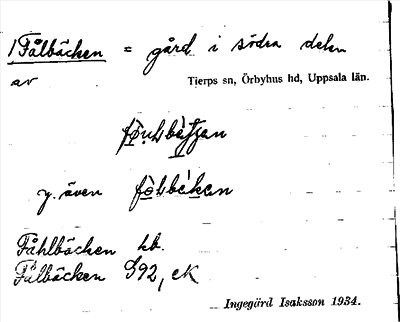 1 Fålbäcken = gård i södra delen
av Tierps sn, Örbyhus hd, Uppsala län.
y. även
Fåhlbäcken hb.
Fålbäcken S92, eK
Ingegärd Isaksson 1934.